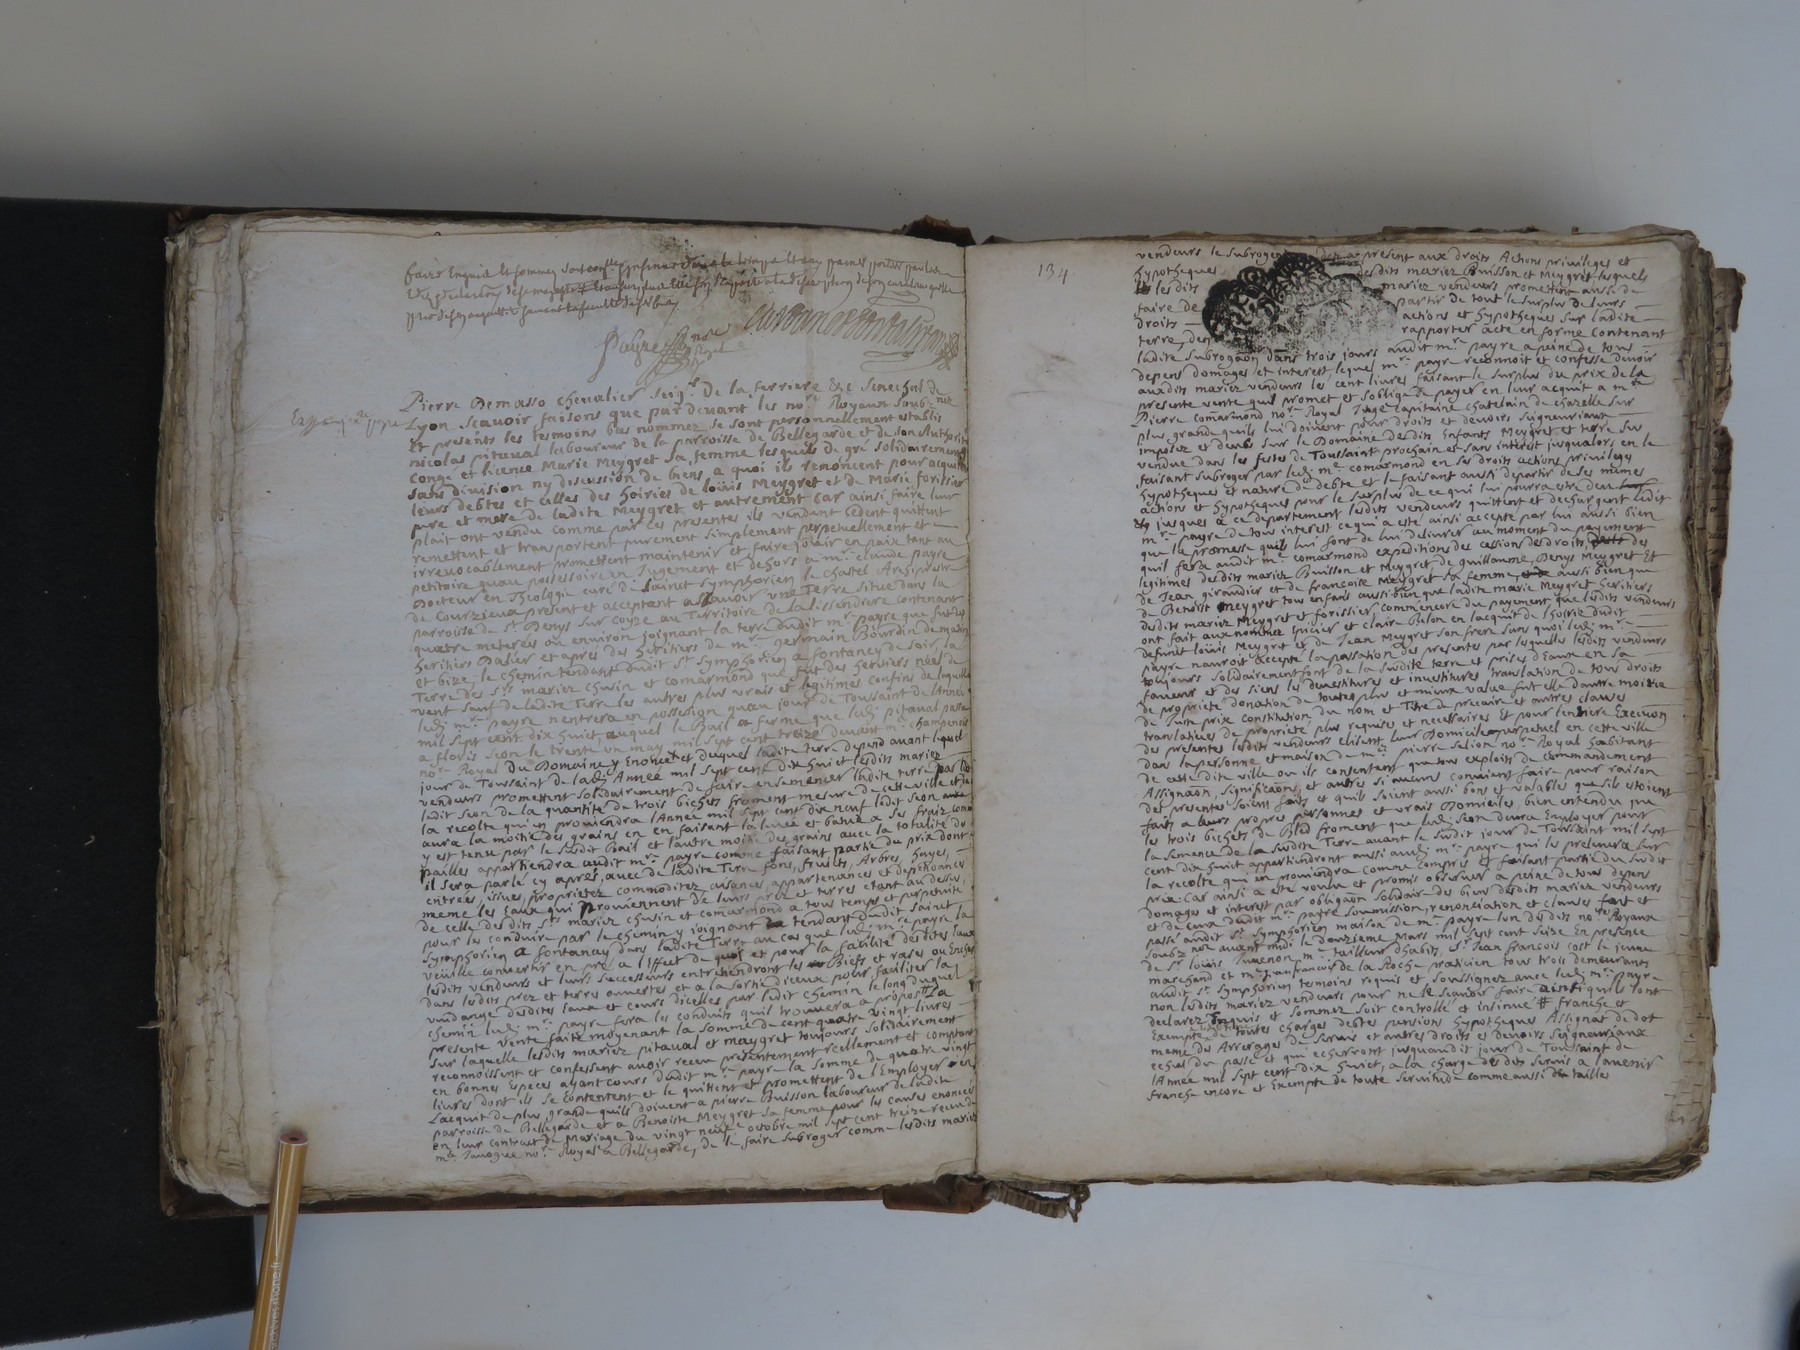 Pierre Demasso Chevalier seig.r De la ferriere Exc Senechal de
Lyon scavoir faisons que pardevant les no.res Royaux soubz.nez
Et presents les tesmoins bas nommez se sont personnellement establis
nicolas pitaval laboureur de la parroisse de Bellegarde et de son Authorité
congé et licence Marie Meygret sa femme lesquels de gré solidairement
sans division ny discussion de biens a quoi ils renoncent pour acquitter
leurs debtes et celles des hoiries de loüis Meygret et de Marie forissier
pere et mere de ladite Meygret et autrement Car ainsi faire leur
plait ont vendu comme par ces presentes ils vendent cedent quittent
remettent et transportent purement simplement perpetuellement et
irrevocablement promettent maintenir et faire jouir en paix tant au
petitoire quau possessoire en Jugement et dehors a m.re claude payre
Docteur en Theologie curé de sainct symphorien le chastel Archiprestre
de Courzieux present et acceptant asscavoir une Terre situe dans la
parroisse de S.t Denys sur Coyze au Territoire de la lissendiere contenant
quatre meterées ou environ joignant la terre dudit m.re payre que fut des
heritiers Dasier et apres des heritiers de m.re germain Bourdin de matin
et bize, le chemin tendant dudit S.t Symphorien a fontaney de soir, la
Terre des S.rs mariez chuzin et comarmond que fut des
vent sauf de ladite Terre les autres plus vrais et legitimes confins de laquelle
led. m.re payre n'entrera en possession quau jour de Toussaint de l'Année
mil sept cent dix huict auquel le Bail a ferme que led. pitaval passa
a floris seon le trente un may mil sept cent treize devant m.e champenois
no.re Royal Du Domaine y Enoncé et duquel ladite Terre depend avant lequel
jour de Toussaint de lad. Année mil sept cent dix huict lesdits mariez
vendeurs promettent solidairement de faire ensemencer ladite terre par le
ledit seon de la quantité de trois bichets froment mesure de cette ville et de
la recolte qui en proviendra l'Année mil sept cent dix neuf ledit seon
aura la moitié des grains en en faisant la levée et batüe a ses fraiz comme
y est tenu par le susdit Bail et l'autre moitié des grains avec la totalité des
pailles appartiendra audit m.re payre comme faisant partie du prix dont
il sera parlé cy apres, avec de ladite Terre fons, fruits, Arbres, hayes,
entrées, issues, proprietez commoditez, aisances, appartenances et dependances
meme les Eaux qui proviennent de leurs prez et terres etant au dessus,
de celle desdits S.rs mariez chuzin et comarmond a tous temps et perpetuité
pour les conduire par le chemin y joignant tendant dudit sainct
symphorien a fontaney dans ladite Terre au cas que led. m.re payre la
veuille convertir en pré a l'Effect de quoi et pour la facilité desdites Eaux
lesdits vendeurs et leurs successeurs entretiendront les Biefs et rases
dans lesdits prez et terres ouvertes et a la sortie diceux pour faciliter la
vuidange desdites Eaux et cours dicelles par ledit chemin le long duquel
chemin led. m.re payre fera les conduits quil trouvera a propos # La
presente vente faite moyenant la somme de cent quatre vingt livres
sur laquelle lesdits mariez pitaval et maygret toujours solidairement
reconnoissent et confessent avoir receu presentement réellement et comptant
en bonnes Especes ayant cours dudit m.re payre la somme de quatre vingt
livres dont ils se contentent et le quittent et promettent de l'Employer en
l'acquit de plus grande quils doivent a pierre Buisson laboureur de ladite
parroisse de Bellegarde et a Benoiste Meygret sa femme pour les causes enoncées
en leur contract de Mariage du vingt neuf.e octobre mil sept cent treize receu de
m.e no.re Royal a Bellegarde, de le faire subroger comme lesdits mariez
134.
vendeurs le subrogent a present aux droits Actions privileges et
hypotheques desdits mariez Buisson et Meygret, lesquels
lesdits mariez vendeurs promettent aussi de
faire de partir de tout le surplus de leurs
droits actions et hypotheques sur ladite
terre, den rapporter acte en forme contenant
ladite subrogaon dans trois jours audit m.re payre a peine de tous
depens domages et interest, lequel m.re payre reconnoit et confesse devoir
auxdits mariez vendeurs les cent livres faisant le surplus du prix de la
presente vente quil promet et soblige de payer en leur acquit a m.re
Pierre comarmond no.re Royal Juge capitaine chatelain de chazelle sur
plus grande quils lui doivent pour droits et devoirs seigneuriaux
imposez et deubs sur le Domaine desdits Enfants Meygret et terre sus
vendue dans les festes de Toussaint prochain et sans interest jusqualors en le
faisant subroger par led. m.e comarmond en ses droits actions privileges
hypotheques et nature de debte et le faisant aussi departir de ses mêmes
actions et hypotheques pour le surplus de ce qui lui pourra estre deu
jusques a ce departement lesdits vendeurs quittent et dechargent ledit
m.re payre de tous interest ce qui a esté ainsi accepté par lui aussi bien
que la promesse quils lui font de lui delivrer au moment du payement
quil fera audit m.e comarmond expeditions des cessions des droits des
legitimes desdits mariez Buisson et Meygret de guillaume, Denys Meygret Et
de Jean giraudier et de françoise Meygret sa femme, aussi bien que
de Benoist Meygret tous enfans aussi bien que ladite marie Meygret heritiers
desdits mariez Meygret et forissier commencer du payement que lesdits vendeurs
ont fait aux nommez Epicier et claire Belon en l'acquit de l'hoirie dudit
defunt loüis Meygret et de Jean Meygret son frere sans quoi led. m.re
payre n'auroit accepté la passation des presentes par lesquelles lesdits vendeurs
toujours solidairement font de la susdite terre et prises d'Eaux en sa
faveur et des siens les devestitures et investitures translation de tous droits
de proprieté donation de toutes plus et mieux value fut elle d'autre moitie
de Juste prix constitution du nom et Titre de precaire et autres clauses
translatives de proprieté plus requises et necessaires Et pour l'entiere Execuon
des presentes lesdits vendeurs elisent leur Domicile perpetuel en cette ville
dans la personne et maison de m.e pierre no.re Royal habitant
de cette dite ville ou ils consentent que tous exploits de commandement
Assignaon, significaons, et autres si aucuns convient faire pour raison
des presentes soient faits et quils soient aussi bons et valables que sils estoient
faits a leurs propres personnes et vrais Domiciles, bien entendu que
les trois bichets de Bled froment que led. seon devra Employer pour
la semence de la susdite Terre avant le susdit jour de Toussaint mil sept
cent dix huit appartiendront aussi aud. m.re payre qui les prelevera sur
la recolte qui en proviendra comme compris et faisant partie du susdit
prix. Car ainsi a esté voulu et promis observer a peine de tous depens
domages et interest par obligaon solidaire des biens desdits mariez vendeurs
et de ceux dudit m.re payre soumission, renonciation et clauses fait et
passé audit S.t Symphorien maison de m.re payre lun desdits no.res Royaux
soubz.nez avant midi le douzieme Mars mil sept cent seize En presence
de S.r loüis m.re tailleur d'habits, S.r Jean françois cost le jeune
marchand et m.e Jeanfrançois de la Roche praticien tous trois demeurants
audit S.t Symphorien temoins requis et soussignez avec led. m.re payre
non lesdits mariez vendeurs pour ne le scavoir faire ainsi quils l'ont
declarez Enquis et sommez soit controllé et insinué # franche et
Exempte de toutes charges debtes pensions hypotheques Assignat de dot
meme des Arrerages de servis et autres droits et devoirs seigneuriaux
echus du passé et qui echerront jusquaudit jour de Toussaint de
l'Année mil sept cent dix huict, a la charge desdits servis a l'avenir
franche encore et Exempte de toute servitude comme aussi de tailles